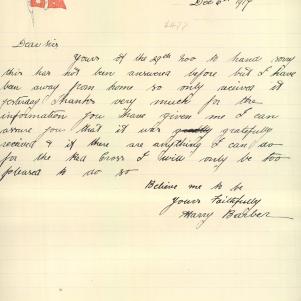 Dec 6th 1919
2477
Dear Sir
Yours of the 29th Nov to hand sorry
this has not been answered before but I have
been away from home so only received it
yesterday Thanks very much for the
information you have given me I can
assure you that it was gratefully
received & if there are anything I can do
for the Red Cross I will only be too
pleased to do so
Believe me to be
Yours Faithfully
Harry Barber